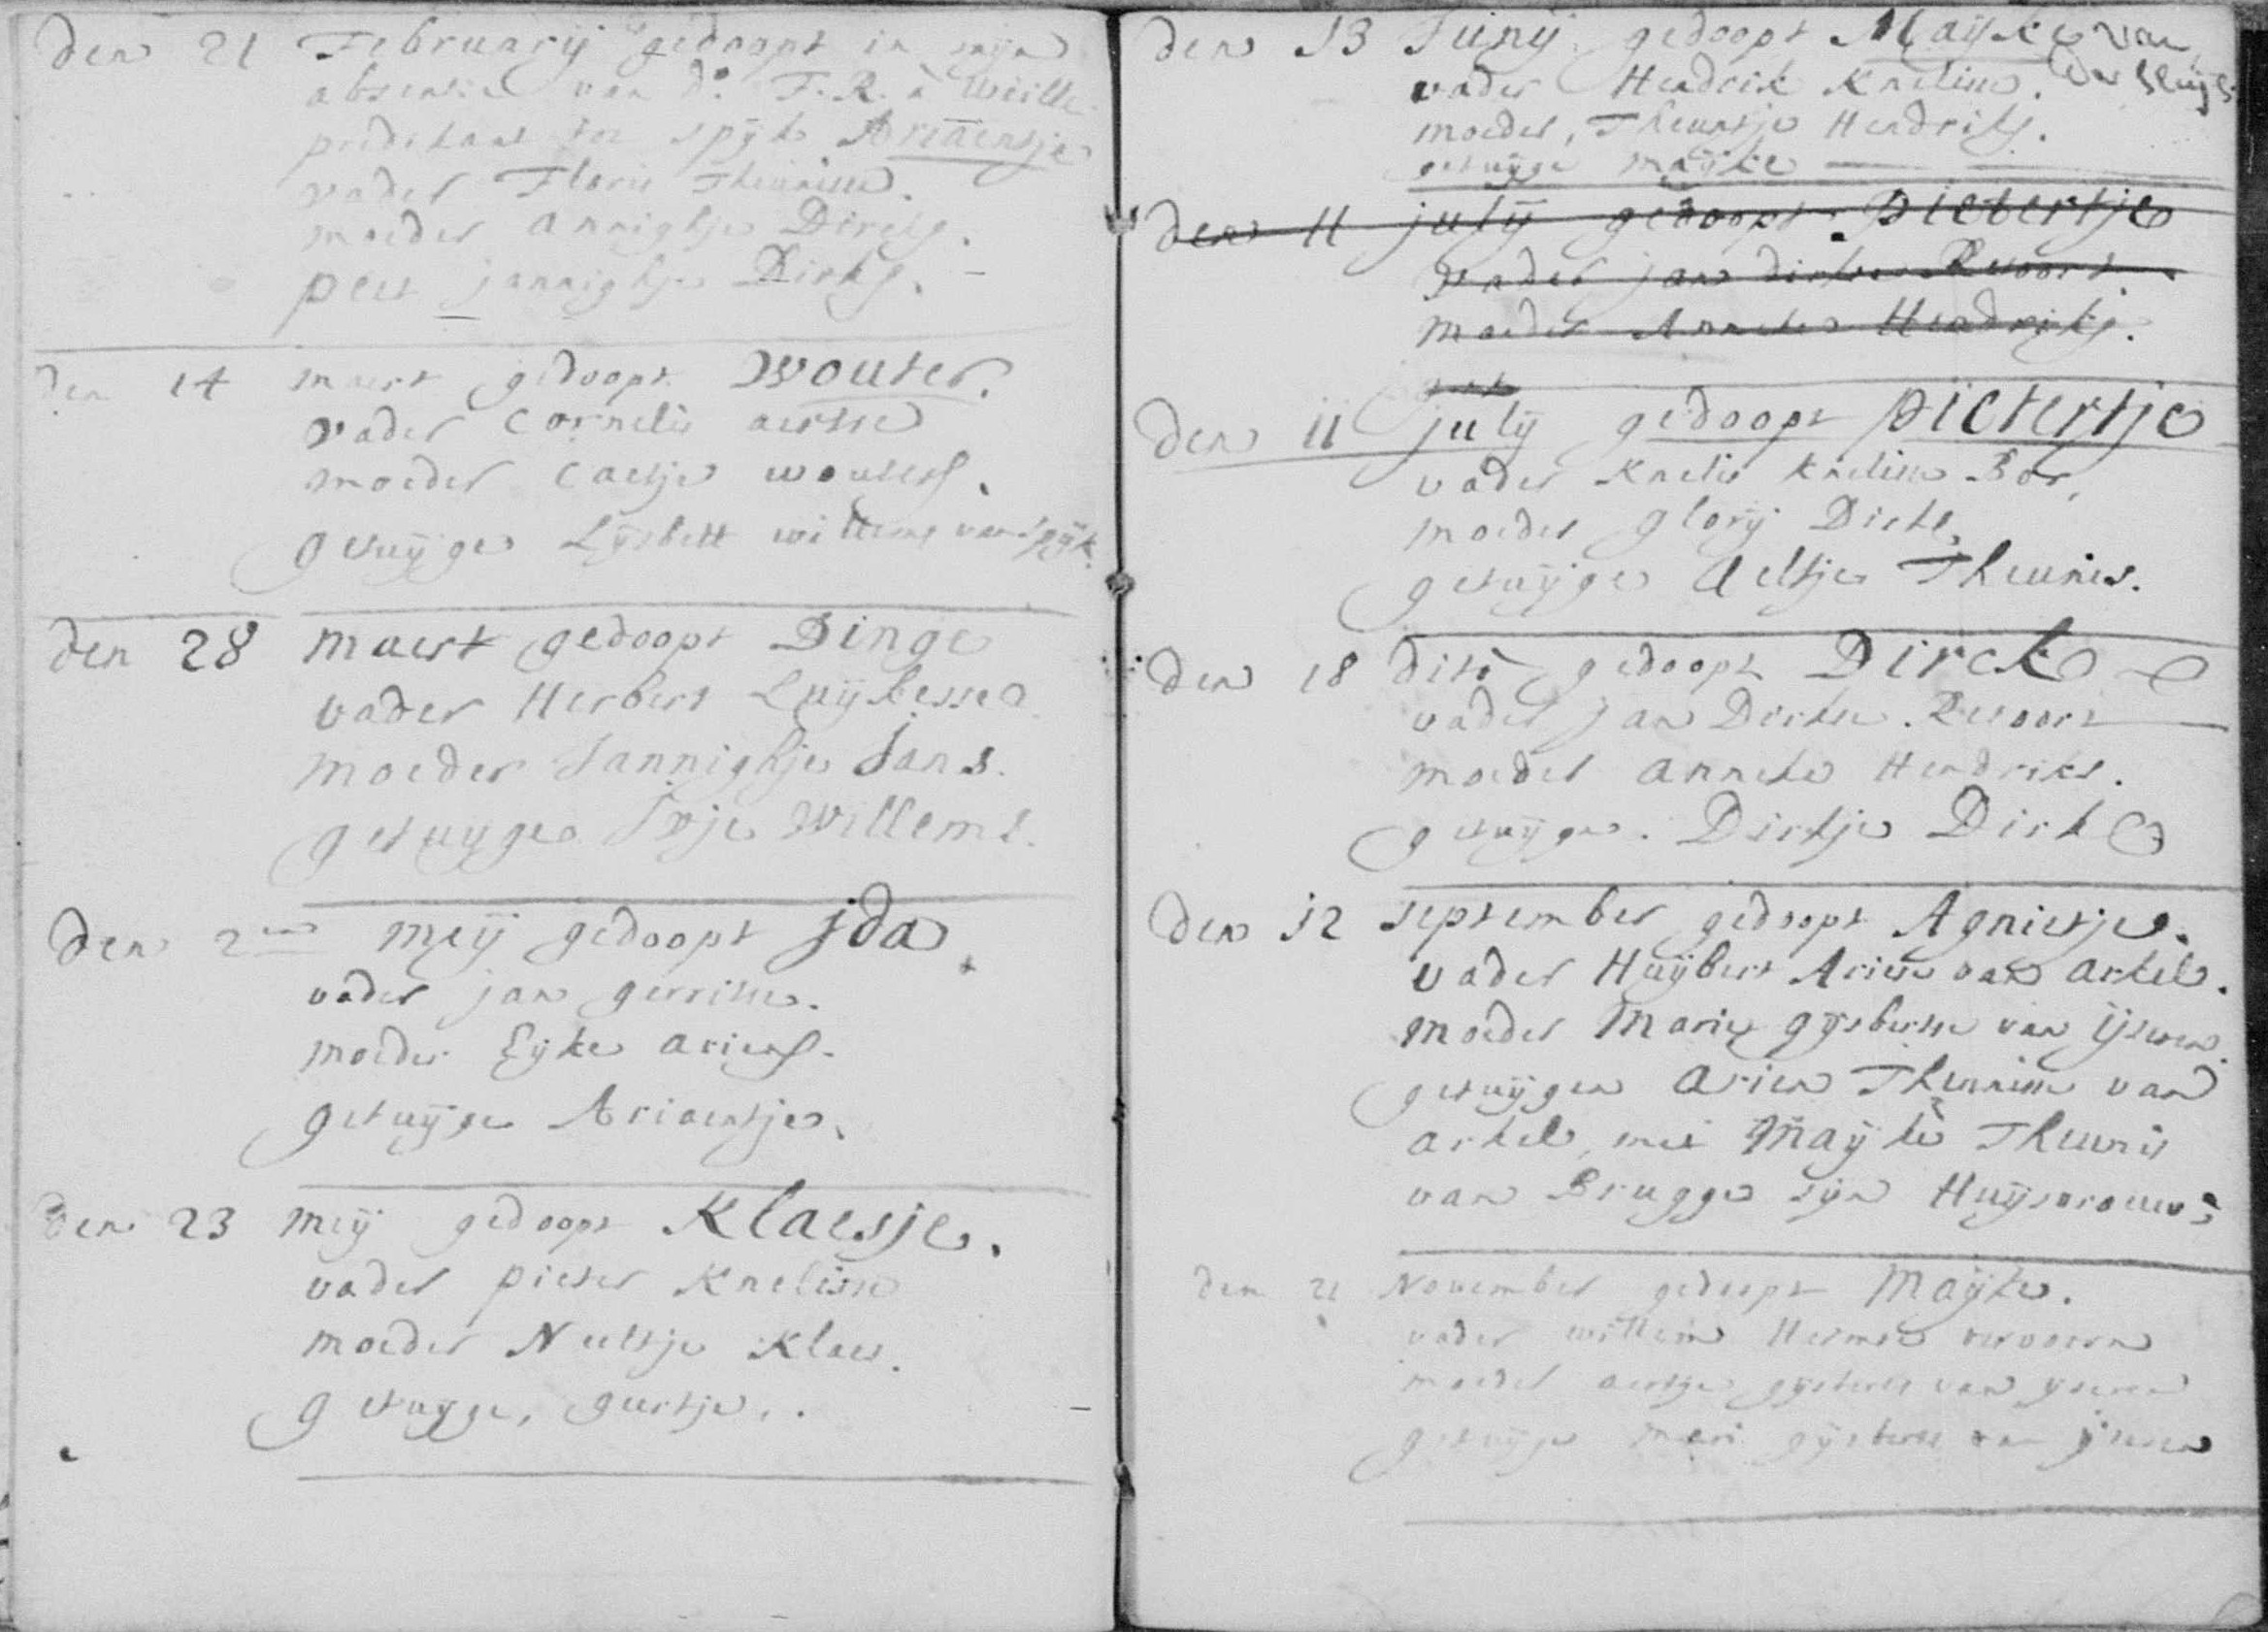 den 21 February gedoopt in mijn
absentie van do. F. R. a
predikant tot spijk Ariaentje
vader Floris Theunisse.
moeder Annighje Dircks.
peet jannighje Dirks.
den 14 maert gedoopt Wouter.
vader Cornelis aertse
moeder Caetje wouters.
getuijge Lijsbett willems van Spijk.
den 28 maert gedoopt Dinge
vader Herbert Luijkesse
moeder Jannighje Jans.
getuyge Willems.
den 2en meij gedoopt jda
vader jan gerritse.
moeder Eijke ariens.
getuijge Ariaentje.
den 23 meij gedoopt Klaesje.
vader pieter Knelisse
moeder Neeltje Klaes.
getuyge, geertje.
den 13 Junij gedoopt Maijke van der Sluijs
vader Hendrik Knelisse.
moeder, Theuntje Hendriks.
getuijge maijke
den 11 julij gedoopt pietertje
vader jan dirkse Revoort
moeder Anneke Hendriks.
den 11 julij gedoopt pietertje
vader Knelis knelisse Bor,
moeder glorij Dirks,
getuijge Aeltje Theunis.
den 18 dito gedoopt Dirck
vader jan Dirckse Revoort
moeder anneke Hendriks.
getuijge. Dirkje Dirks
den 12 september gedoopt Agnietje.
vader Huijbert Ariese van arkel.
moeder Marie gijsbertse van ijseren.
getuijgen Arien Theunisse van
arkel, met Maijke Theunis
van Brugge sijn Huijsvrouw
den 21 November gedoopt Maijke.
vader willem Hermse vervoorn
moeder aertje gijsberts van ijseren
getuijge meri gijsberts van ijseren